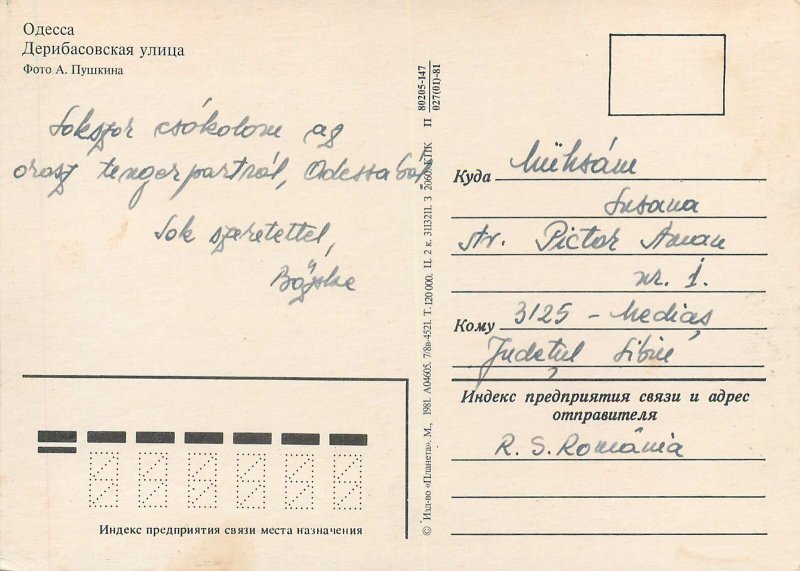 Одесса
Дерибасовская улица
Фото А. Пушкина
Sokszor csókolom az
orosz tengerpartról, Odessából
Sok szeretettel,
Böjske
© Изд-во «Планета». М., 1981. А04605. 7/8в-4521. Т. 120 000. Ц. 2 к. 3113211. З 2060. КПК
П 80205-147
027(01)-81
Куда Mühsám
Susana
str. Pictor Aman
nr. 1.
Кому 3125 - Mediaș
Județul Sibiu
Индекс предприятия связи и адрес
отправителя
R. S. România
Индекс предприятия связи места назначения